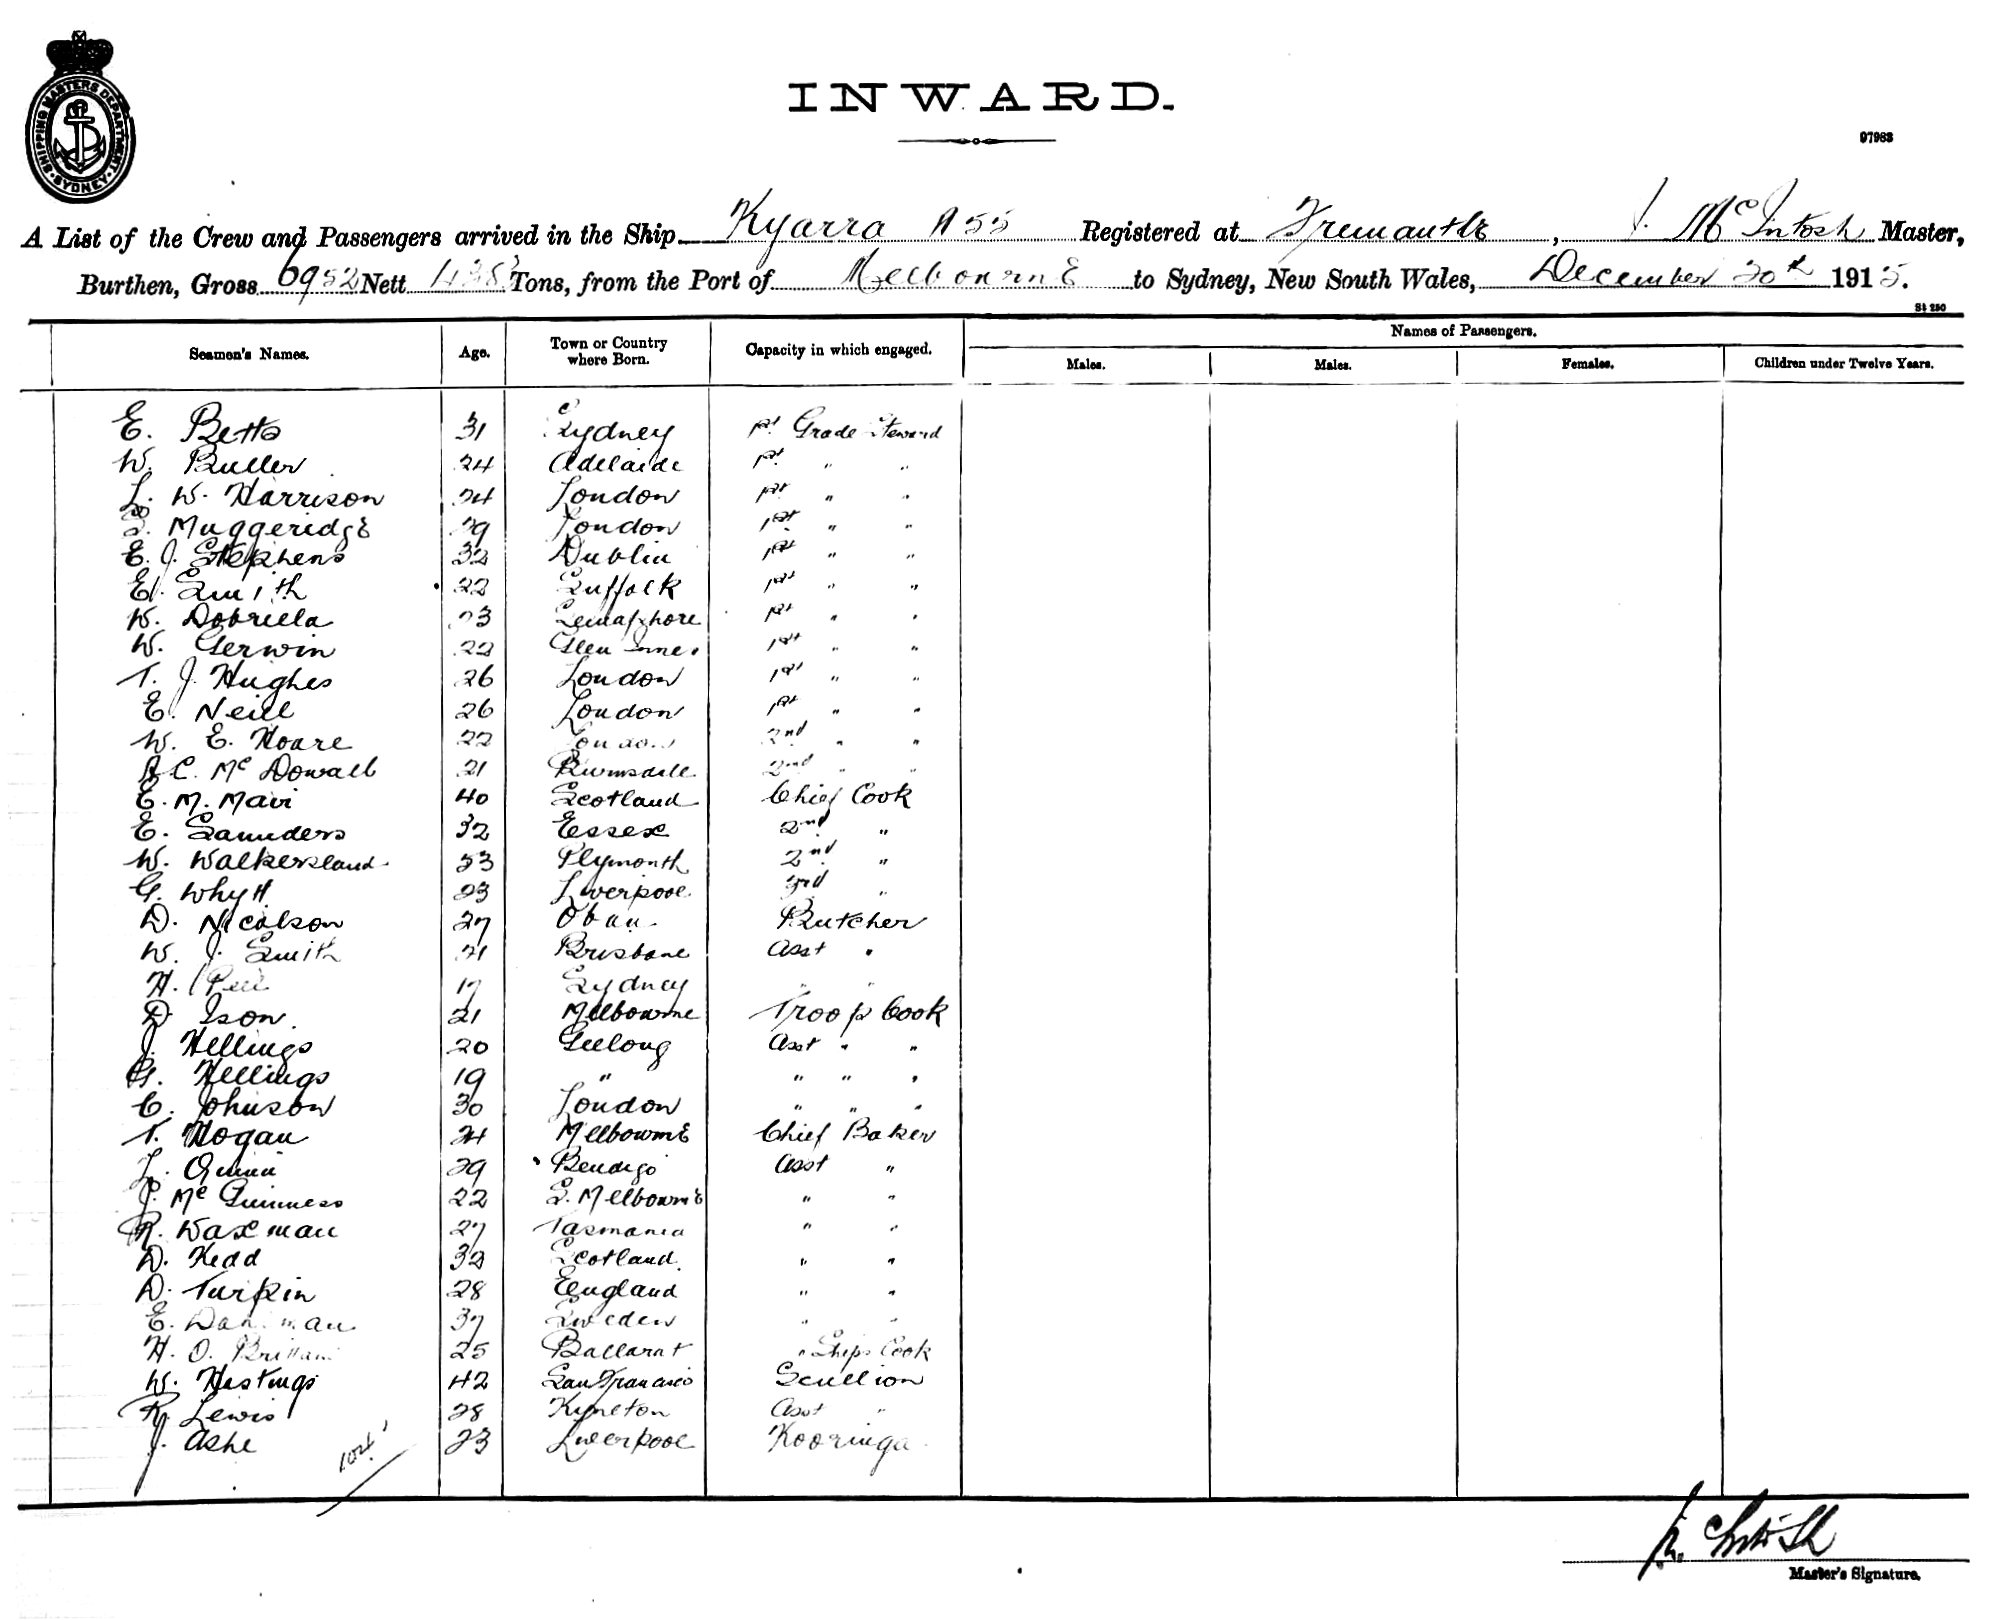 SHIPPING MASTERS DEPARTMENT. SYDNEY
INWARD.
97983
A List of the Crew and Passengers arrived in the Ship Kyarra A55 Registered at Fremantle, J. McIntosh Master,
Burthen, Gross 6952 Nett Tons, from the Port of Melbourne to Sydney, New South Wales, December 20th 1915.
St 250
Seamen's Names. Age. Town or Country where Born. Capacity in which engaged. Names of Passengers.
Males. Males. Females. Children under Twelve Years.
E. Betts 31 Sydney 1st Grade Steward
W. Buller 24 Adelaide 1st " "
L. W. Harrison 24 London 1st " "
S. Muggeridge 29 London 1st " "
E. J. Stephens 32 Dublin 1st " "
E. Smith 22 Suffolk 1st " "
W. Dobriela 23 Semaphore 1st " "
W. Gerwin 22 Glen Innes 1st " "
T. J. Hughes 26 London 1st " "
E. Neill 26 London 1st " "
W. E. Hoare 22 London 2nd " "
C. McDowall 21 2nd " "
E. M. Mavi 40 Scotland Chief Cook
E. Saunders 32 Essex 2nd "
W. Walkersland 33 Plymouth 2nd "
G. Whytt 23 Liverpool 3rd "
D. Nicolson 27 Oban Butcher
W. J. Smith 21 Brisbane Asst "
H. Peel 17 Sydney " "
D. Ison 21 Melbourne Troop Cook
J. Hellings 20 Geelong Asst " "
G. Hellings 19 " " " "
C. Johnson 30 London " " "
T. Hogan 24 Melbourne Chief Baker
L. Quinn 29 Bendigo Asst "
J. McGuinness 22 S. Melbourne " "
R. Waxman 27 Tasmania " "
D. Kedd 32 Scotland " "
D. Turpin 28 England " "
E. 37 Sweden " "
H. O. Brittain 25 Ballarat " Ships Cook
W. Hastings 42 San Francisco Scullion
R. Lewis 28 Kyneton Asst "
J. Ashe 23 Liverpool Kooringa
104
McIntosh
Master's Signature.